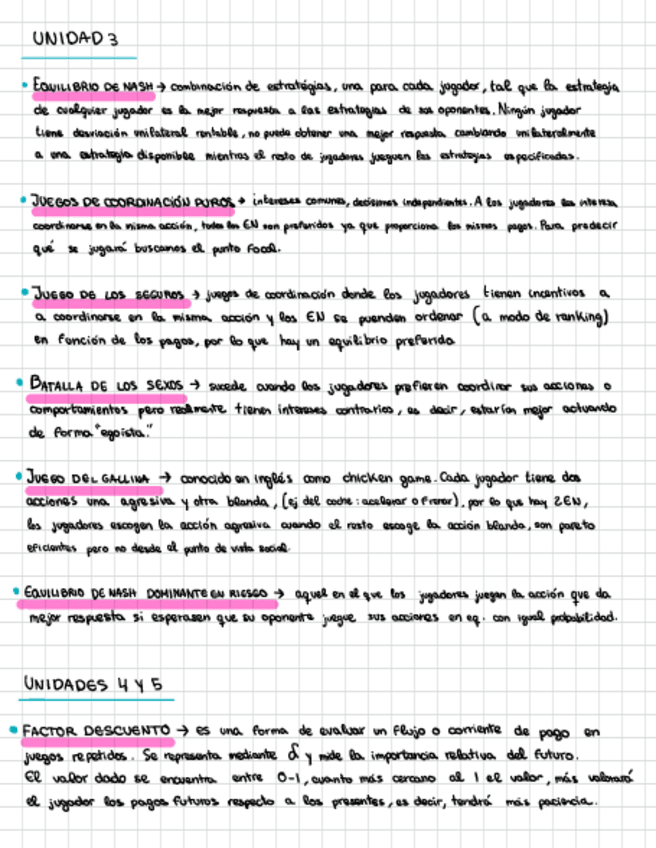 UNIDAD 3
• EQUILIBRIO DE NASH → combinación de estratégias, una para cada jugador, tal que la estrategia
de cualquier jugador es la mejor respuesta a las estrategias de sus oponentes. Ningún jugador
tiene desviación unilateral rentable, no puede obtener una mejor respuesta cambiando unilateralmente
a una estrategia disponible mientras el resto de jugadores jueguen las estrategias especificadas.
• JUEGOS DE COORDINACIÓN PUROS → intereses comunes, decisiones independientes. A los jugadores les interesa
coordinarse en la misma acción, todos los EN son preferidos ya que proporciona los mismos pagos. Para predecir
qué se jugará buscamos el punto focal.
• JUEGO DE LOS SEGUROS → juegos de coordinación donde los jugadores tienen incentivos a
a coordinarse en la misma acción y los EN se pueden ordenar (a modo de ranking)
en función de los pagos, por lo que hay un equilibrio preferido
• BATALLA DE LOS SEXOS → sucede cuando los jugadores prefieren coordinar sus acciones o
comportamientos pero realmente tienen intereses contrarios, es decir, estarían mejor actuando
de forma "egoísta."
• JUEGO DEL GALLINA → conocido en inglés como chicken game. Cada jugador tiene dos
acciones una agresiva y otra blanda, (ej del coche: acelerar o frenar), por lo que hay 2EN,
los jugadores escogen la acción agresiva cuando el resto escoge la acción blanda, son pareto
eficientes pero no desde el punto de vista social.
• EQUILIBRIO DE NASH DOMINANTE EN RIESGO → aquel en el que los jugadores juegan la acción que da
mejor respuesta si esperasen que su oponente juegue sus acciones en eq. con igual probabilidad.
UNIDADES 4 Y 5
• FACTOR DESCUENTO → es una forma de evaluar un flujo o corriente de pago en
juegos repetidos. Se representa mediante δ y mide la importancia relativa del futuro.
El valor dado se encuentra entre 0-1, cuanto más cercano al 1 el valor, más valorará
el jugador los pagos futuros respecto a los presentes, es decir, tendrá más paciencia.